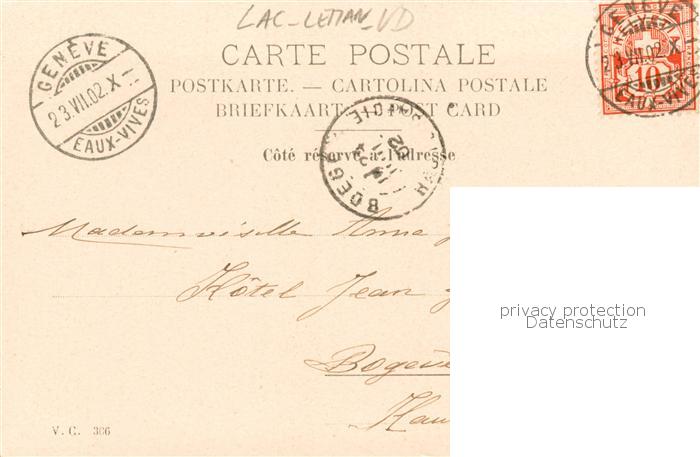 LAC-LEMAN_VD
CARTE POSTALE
POSTKARTE. — CARTOLINA POSTALE
BRIEFKAART. POST CARD
Côté réservé à l'adresse
GENÈVE
23.VII.02.X
EAUX-VIVES
GENÈVE
HELVETIA
23.VII.02.X
10
EAUX-VIVES
BOEGE
SAVOIE
02
Mademoiselle Anna
Hôtel Jean
Bogève
Hau
V. C. 386
privacy protection
Datenschutz